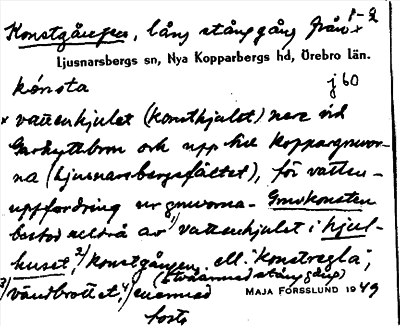 Konstgången, lång stånggång från x 1-2
Ljusnarsbergs sn, Nya Kopparbergs hd, Örebro län.
kónsta j 60
x vattenhjulet (konsthjulet) nere vid
Garhyttebron och upp till koppargruvor-
na (Ljusnarsbergsfältet), för vatten-
uppfordring ur gruvorna. Gruvkonsten
bestod alltså av 1) vattenhjulet i hjul-
huset, 2) konstgången ell. "konstregla",
(tvåarmad stånggång)
3) vändbrottet, 4) enarmad
MAJA FORSSLUND 1949
forts